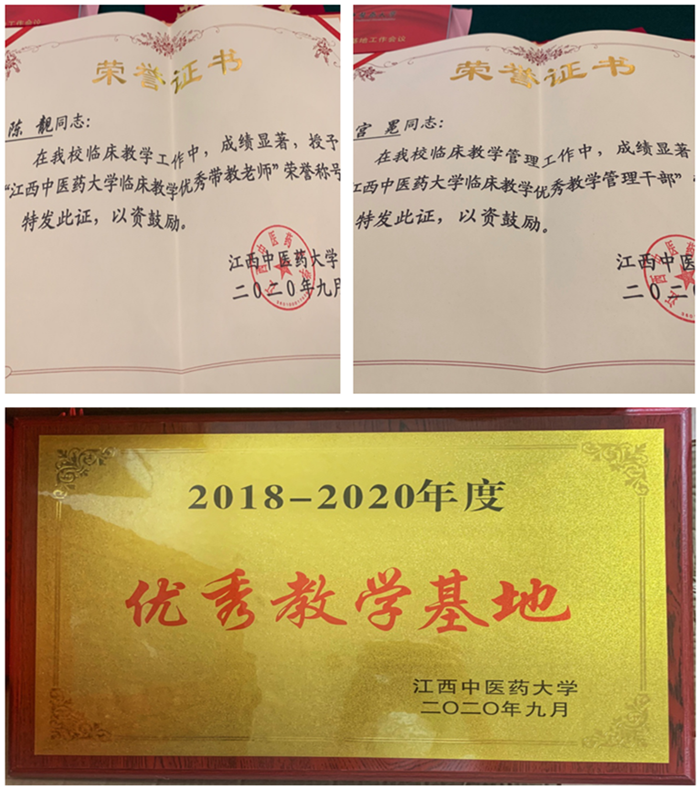 荣誉证书
陈靓同志：
在我校临床教学工作中，成绩显著，授予
“江西中医药大学临床教学优秀带教老师”荣誉称号
特发此证，以资鼓励。
江西中医药大学
二〇二〇年九月
地工作会议
荣誉证书
同志：
在我校临床教学管理工作中，成绩显著
江西中医药大学临床教学优秀教学管理干部”
特发此证，以资鼓励。
江西中医
二〇二〇
2018-2020年度
优秀教学基地
江西中医药大学
二〇二〇年九月